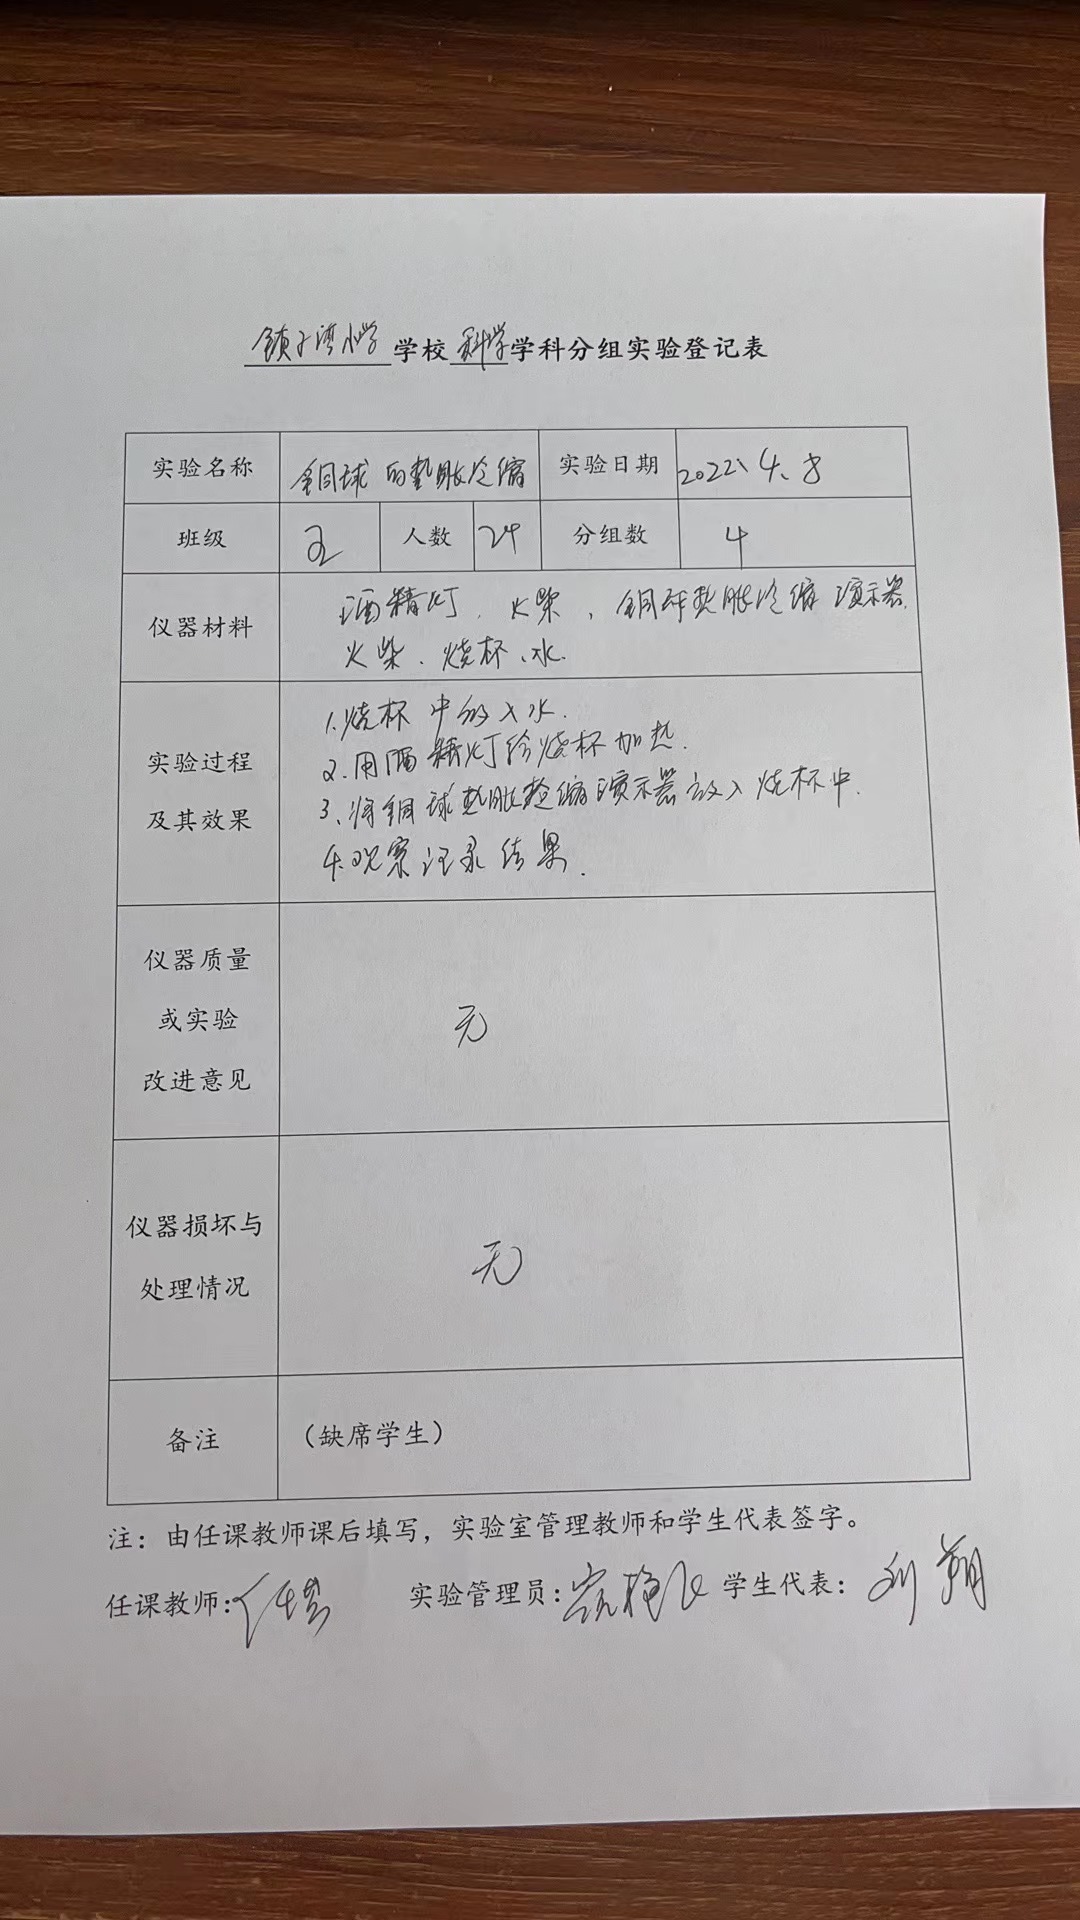 镇子湾小学学校科学学科分组实验登记表
实验名称 铜球的热胀冷缩 实验日期 2022、4、8
班级 五 人数 24 分组数 4
仪器材料 酒精灯、火柴、铜球热胀冷缩演示器
火柴、烧杯、水.
实验过程
及其效果
1.烧杯中放入水.
2.用酒精灯给烧杯加热.
3、将铜球热胀冷缩演示器放入烧杯中.
4.观察记录结果.
仪器质量
或实验
改进意见
无
仪器损坏与
处理情况
无
备注 (缺席学生)
注：由任课教师课后填写，实验室管理教师和学生代表签字。
任课教师: 实验管理员: 学生代表: 刘翔